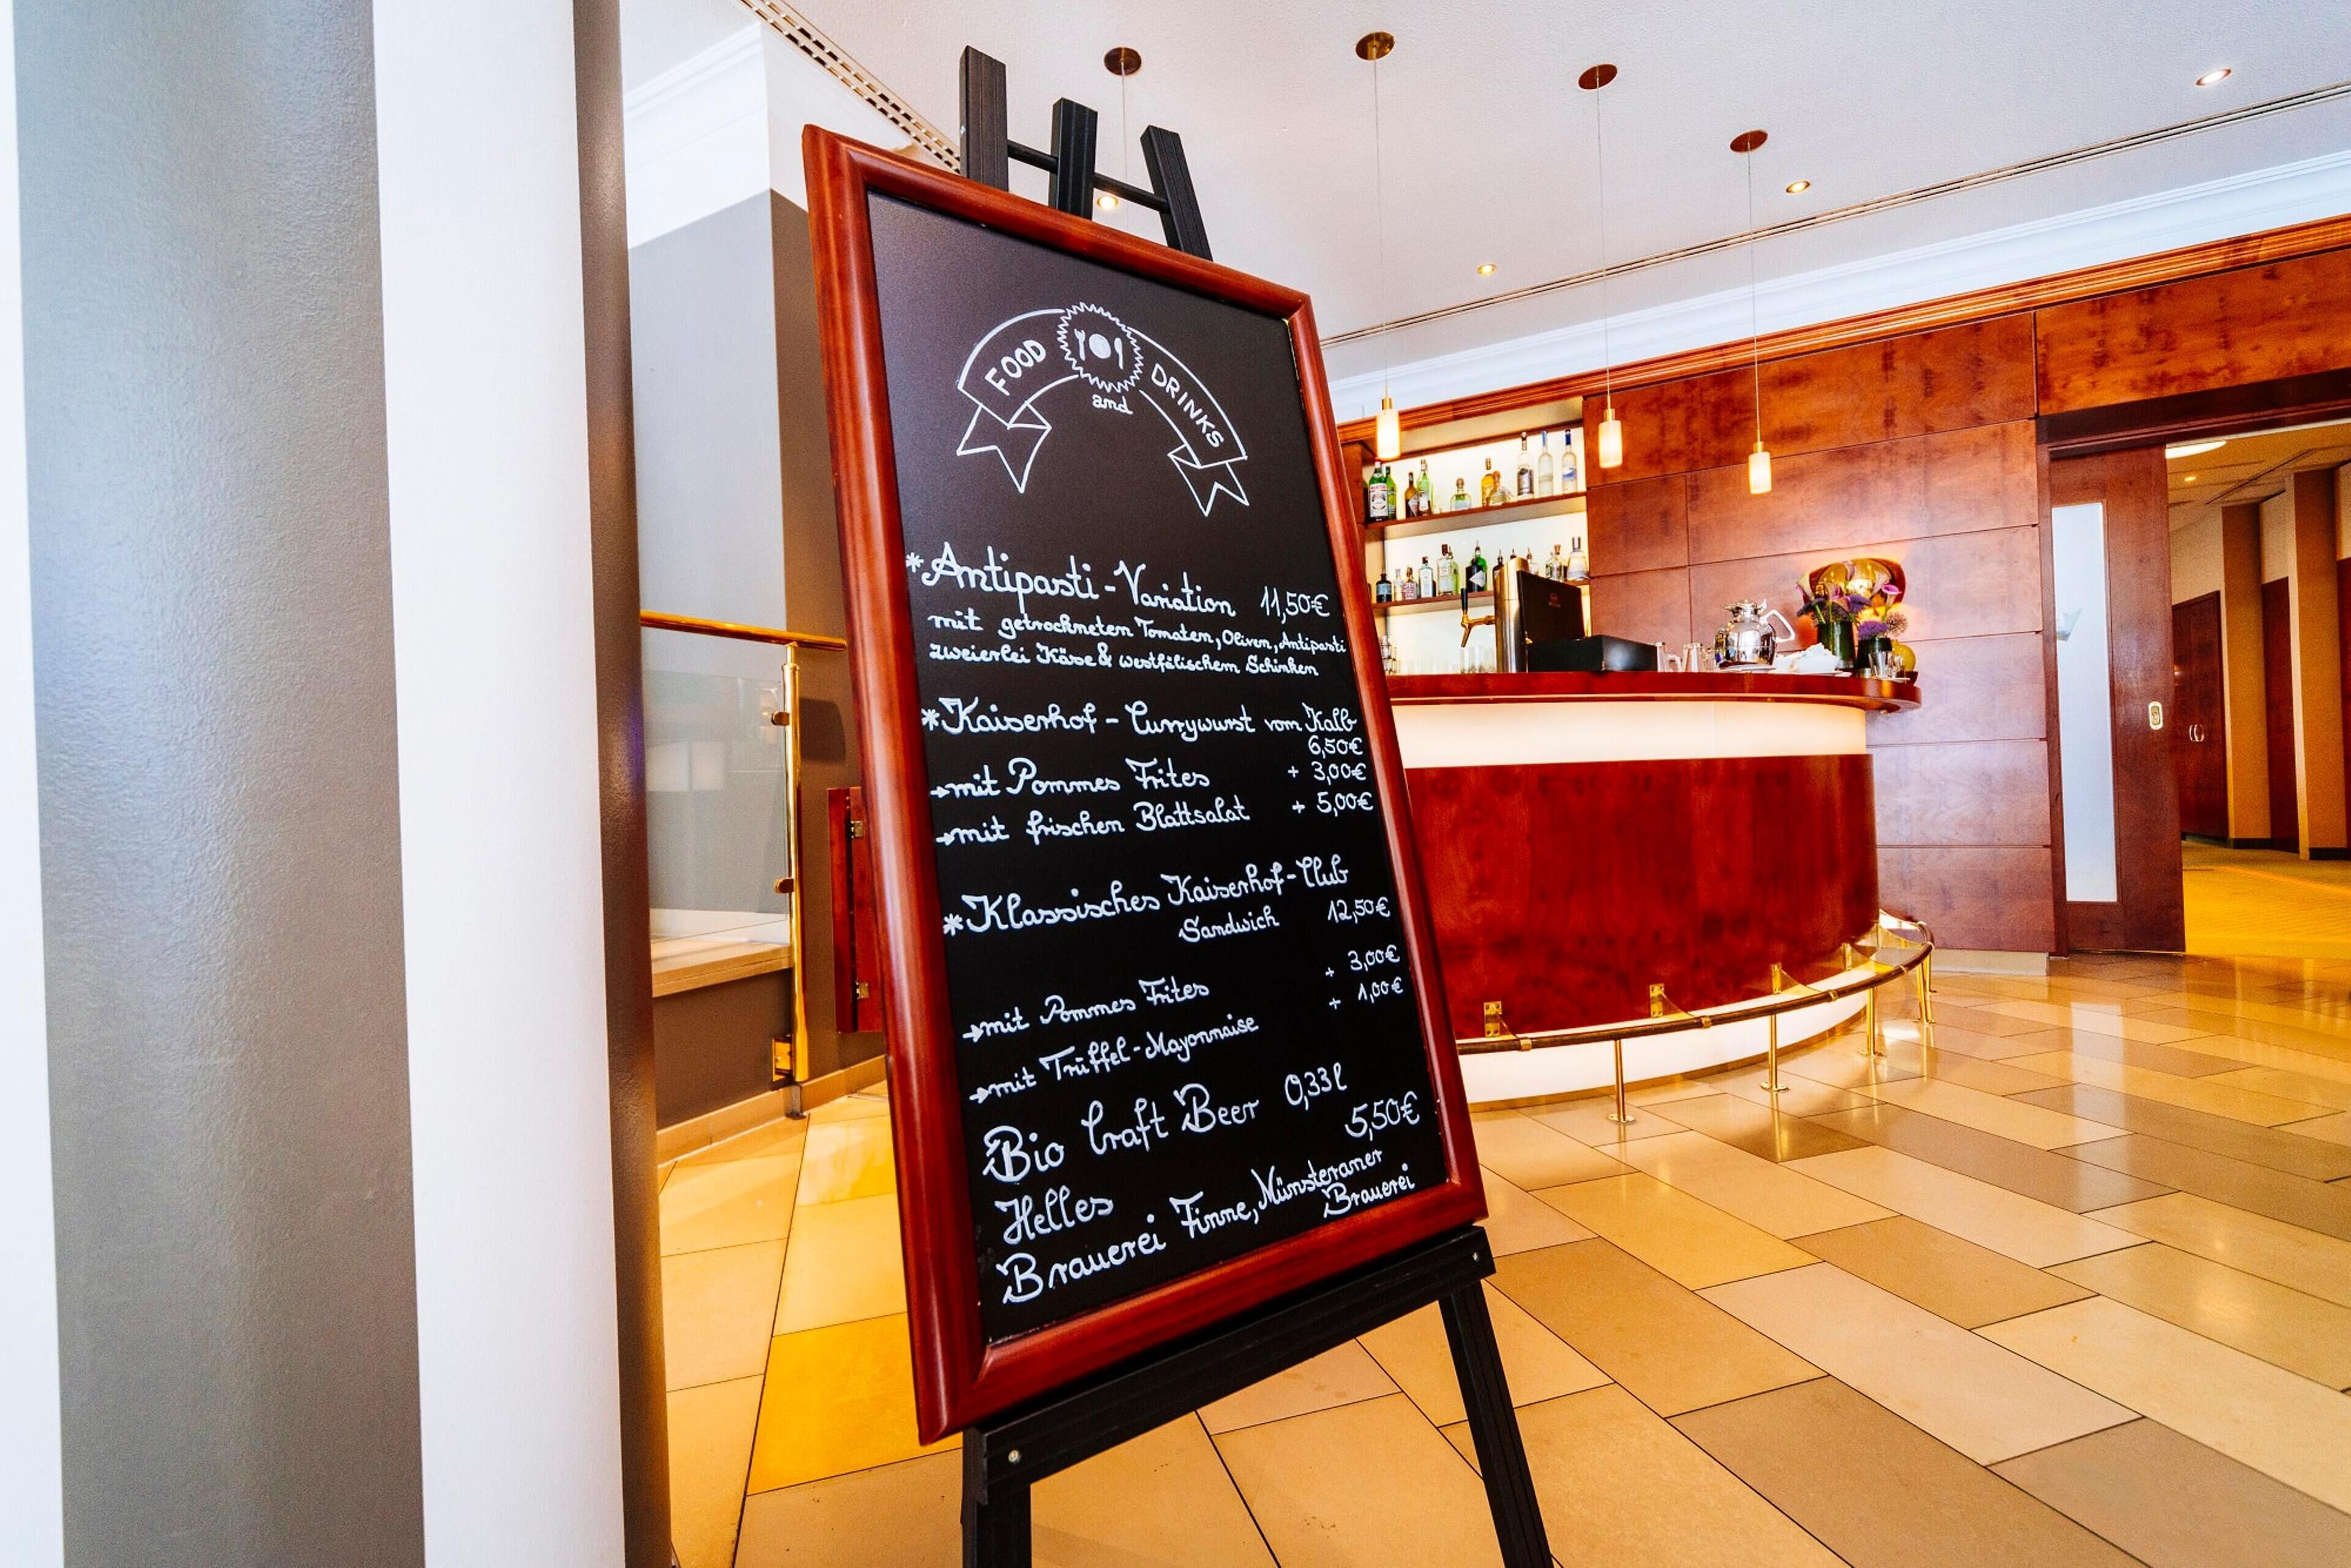 FOOD and DRINKS
*Antipasti-Variation 11,50€
mit getrockneten Tomaten, Oliven, Antipasti
zweierlei Käse & westfälischem Schinken
*Kaiserhof-Currywurst vom Kalb
6,50€
→mit Pommes Frites + 3,00€
→mit frischen Blattsalat + 5,00€
*Klassisches Kaiserhof-Club
Sandwich 12,50€
→mit Pommes Frites + 3,00€
→mit Trüffel-Mayonnaise + 1,00€
Bio Craft Beer 0,33l
5,50€
Helles
Brauerei Finne, Münsteraner
Brauerei